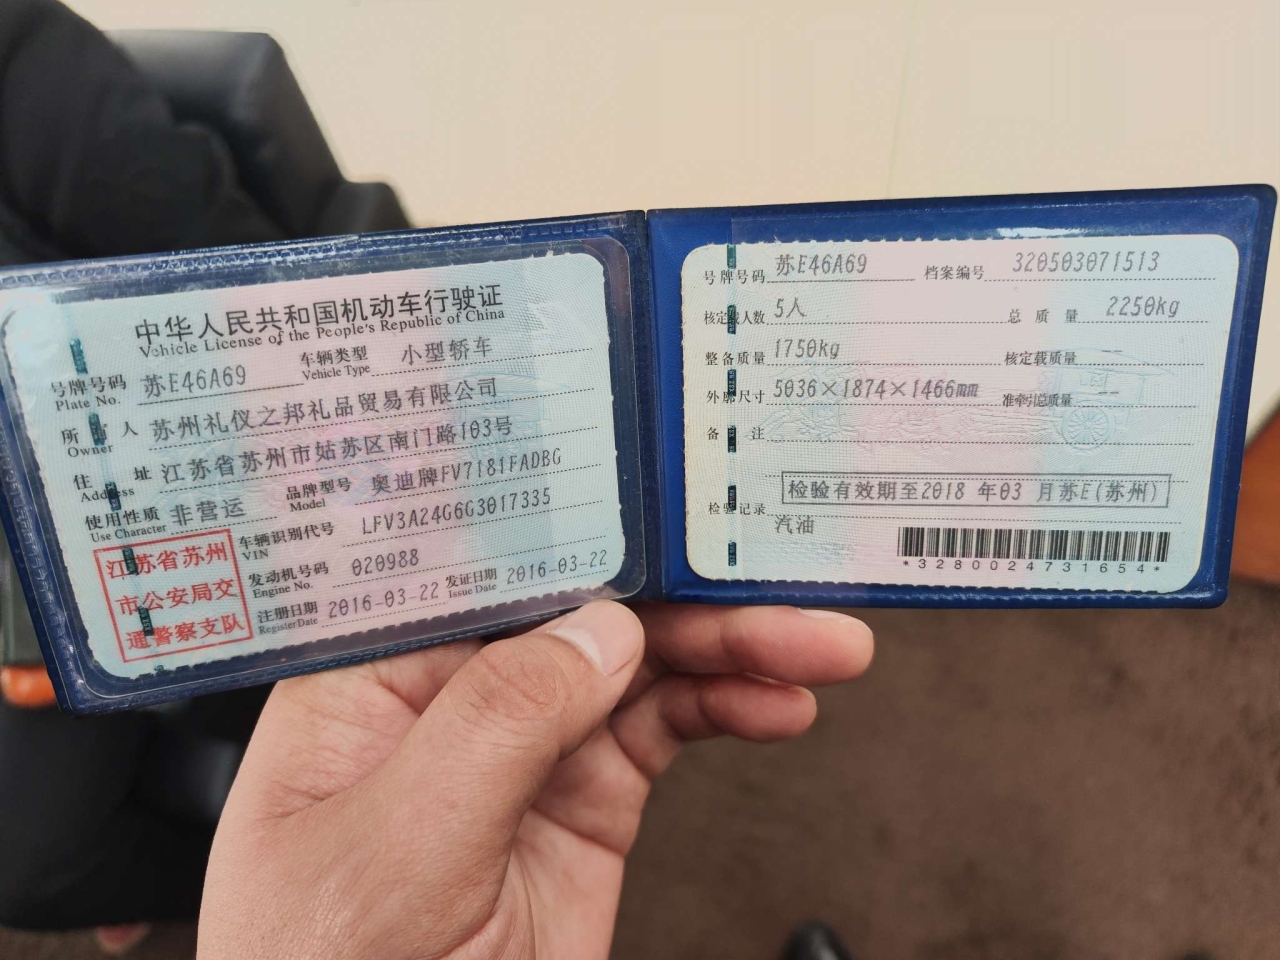 中华人民共和国机动车行驶证
Vehicle License of the People's Republic of China
号牌号码 苏E46A69 车辆类型 小型轿车
Plate No. Vehicle Type
所有人 苏州礼仪之邦礼品贸易有限公司
Owner
住址 江苏省苏州市姑苏区南门路103号
Address
使用性质 非营运 品牌型号 奥迪牌FV7181FADBG
Use Character Model
车辆识别代号 LFV3A24G6G3017335
VIN
发动机号码 020988
Engine No.
注册日期 2016-03-22 发证日期 2016-03-22
Register Date Issue Date
江苏省苏州
市公安局交
通警察支队
号牌号码 苏E46A69 档案编号 320503071513
核定载人数 5人 总质量 2250kg
整备质量 1750kg 核定载质量 --
外廓尺寸 5036×1874×1466mm 准牵引总质量 --
备注
检验有效期至2018 年03 月苏E(苏州)
检验记录
汽油
*3280024731654*